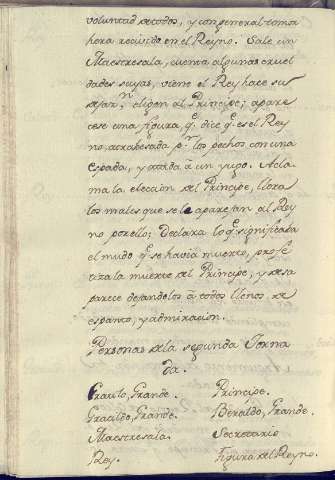 voluntad de todos, y con general temor
hora recivido en el Reyno. Sale un
Maestresala, cuenta algunas cruel
dades suyas, viene el Rey hace su
eligen al Principe; apare
cese una figura, q.e dice q.e es el Rey
no atrabesada p.r los pechos con una
espada, y atada à un yugo. Acla
ma la eleccion del Principe, llora
los males que se le aparejan al Rey
no por ello; Declara lo q.e significaba
el mudo q.e se havia muerto, profe
tiza la muerte del Principe, y desa
parece dejandolos à todos llenos de
espanto, y admiracion.
Personas de la segunda Jorna
da.
Eraulo, Grande.
Gracildo, Grande.
Maestresala.
Rey.
Principe.
Beraldo, Grande.
Secretario
Figura del Reyno.